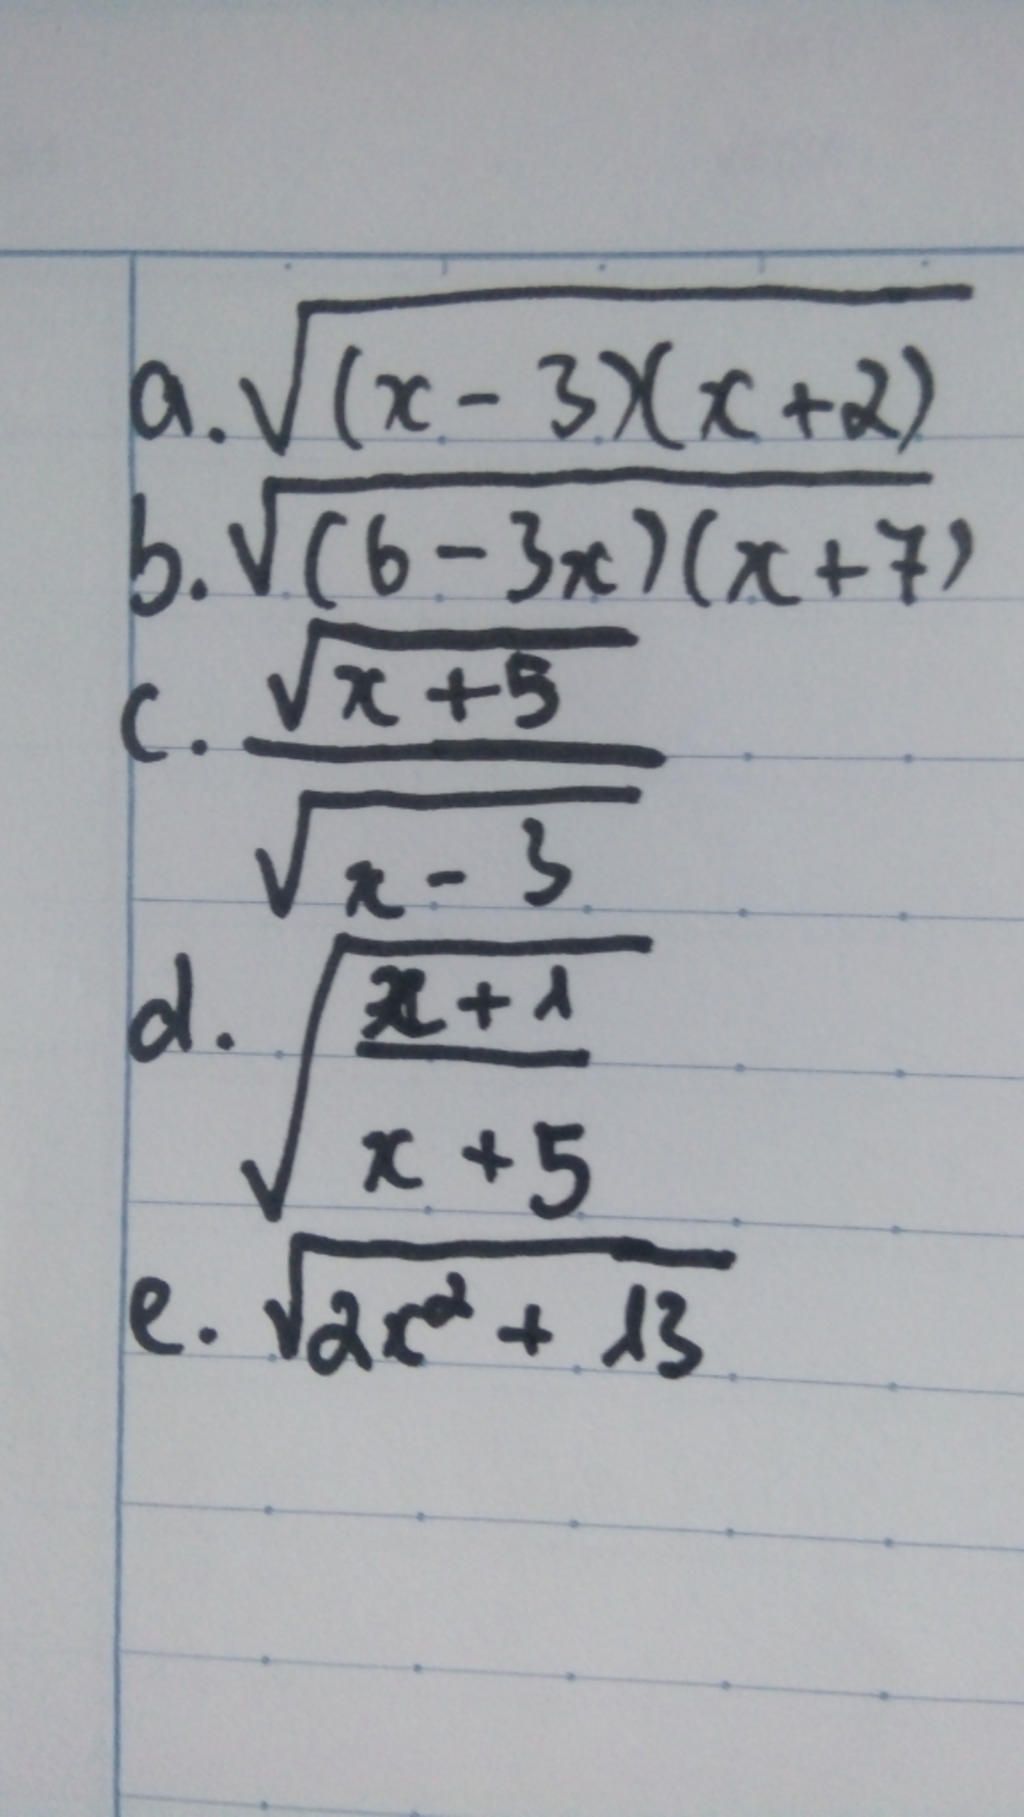 a. √(x - 3)(x + 2)
b. √(6 - 3x)(x + 7)
c. √x + 5
√x - 3
d. √x + 1
x + 5
e. √2x² + 13